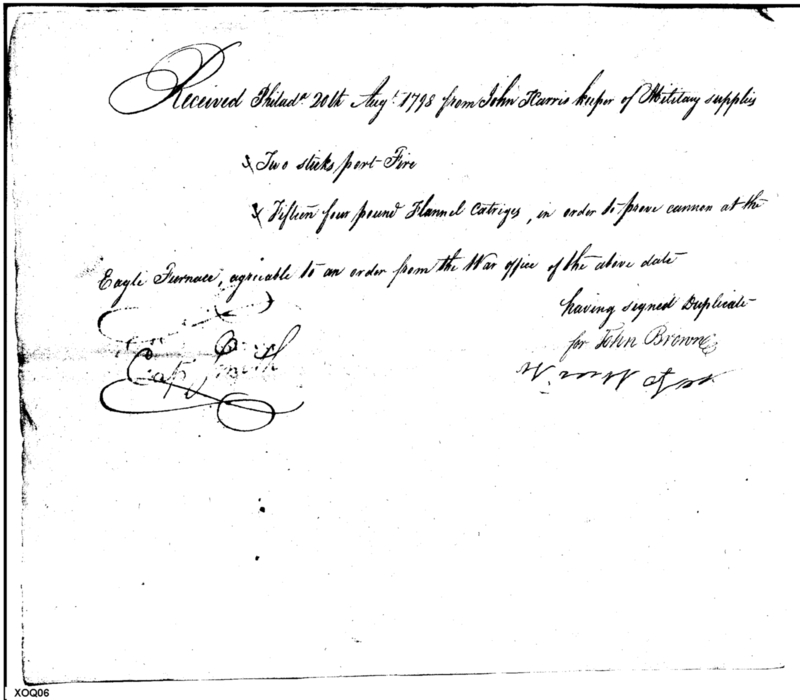 Received Philada 20th Augt 1798 from John Harris keeper of Military supplies
Two sticks port Fire
Fifteen four pound Flannel Catriges, in order to prove cannon at the
Eagle Furnace, agreable to an order from the War office of the above date
having signed Duplicate
for John Brown
Cap
XOQ06